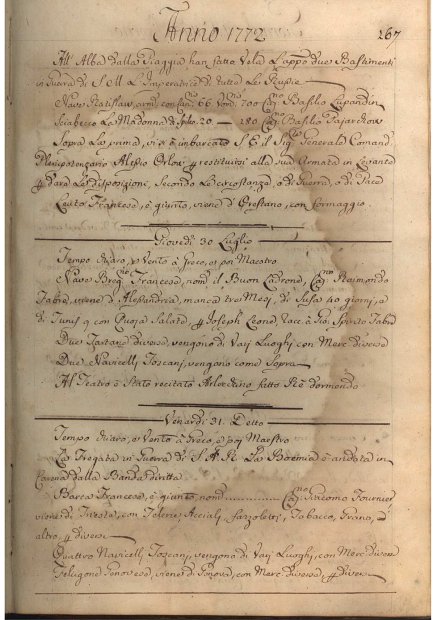 Anno 1772
267
All' Alba dalla Piaggia han fatto Vela L'app.o due Bastimenti
in Guerra di S. M. L'Imperatrice di tutte Le Russie
Nave Ratislaw, arm. con Can. 66. Uom. 700 Cap. Basilio Lupandin
Sciabecco La Madonna di 20 — 280 Cap. Basilio
Sopra La prima, vi si è imbarcato S. E. il Sig. Generale Comand.
Plenipotenzario Alesio Orlow p restituirsi alla sua Armata in Levante
p dare Le disposizioni, Secondo Le circostanze, o di Guerra, o di Pace
Leuto Francese, è giunto, viene d'Orestano, con formaggio.
Giovedì 30 Luglio
Tempo chiaro, e Vento à Greco, et poi Maestro
Nave Francese, nom. il Buon Cap. Raimondo
Fabre, viene d'Alesandria, manca tre Mesi, di Susa 40 giorni, e
di Tunis 9, con Cuoja Salate, p Joseph Leone, racc. à Gio. Spirito Fabre
Due Tartane diverse, vengono di Varj Luoghi con Merc. diverse
Due Navicelli Toscani, vengono come Sopra
Al Teatro è Stato recitato Arlecchino fatto Rè dormendo
Venardì 31. Detto
Tempo chiaro, et Vento à Greco, e poi Maestro
La Fregata in Guerra di S. A. R. La Boemia è andata in
Carena dalla Banda diritta
Barca Francese, è giunta, nom. ............ Cap. Giacomo Fournier
viene di Trieste, con Telerie, Acciali, Tabacco, e
altro, p diversi
Quattro Navicelli Toscani, vengono di Varj Luoghi, con Merc. diverse
Felugone Genovese, viene di Genova, con Merc. diverse, p diversi